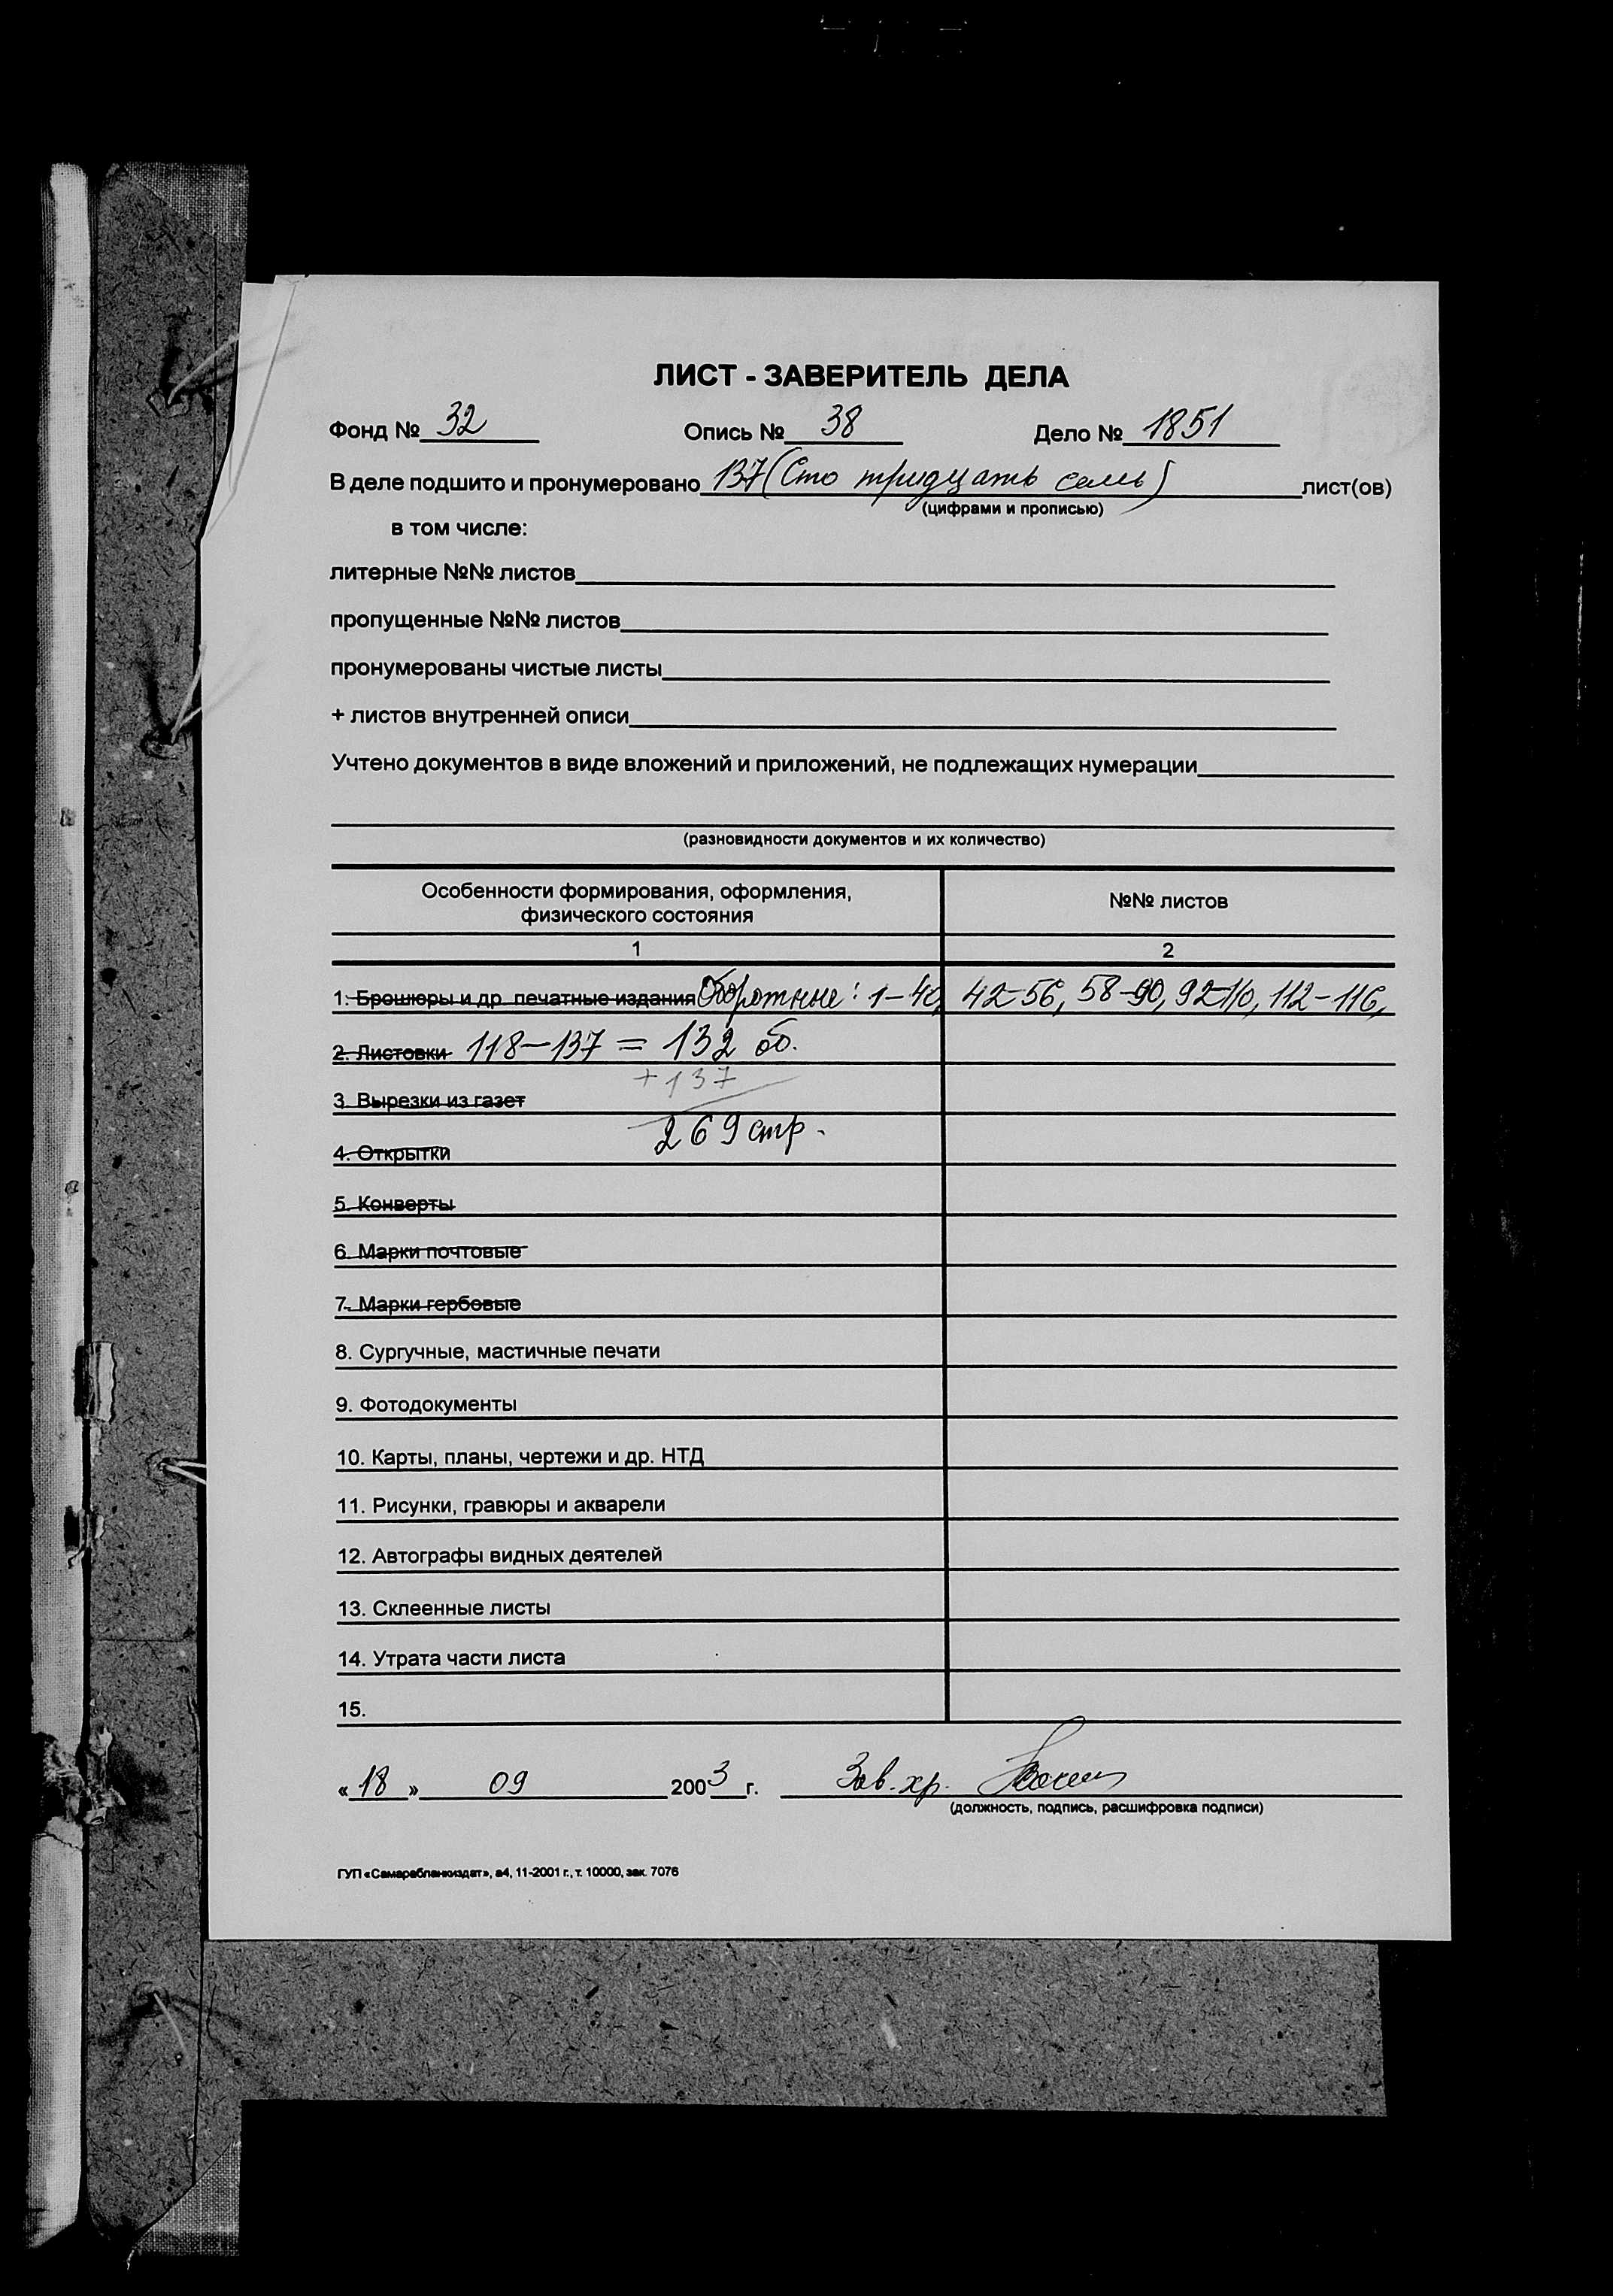 ЛИСТ - ЗАВЕРИТЕЛЬ ДЕЛА
Фонд № 32 Опись № 38 Дело № 1851
В деле подшито и пронумеровано 137 (Сто тридцать семь) лист(ов)
(цифрами и прописью)
в том числе:
литерные №№ листов
пропущенные №№ листов
пронумерованы чистые листы
+ листов внутренней описи
Учтено документов в виде вложений и приложений, не подлежащих нумерации
(разновидности документов и их количество)
Особенности формирования, оформления, №№ листов
физического состояния
1 2
1. Брошюры и др. печатные издания Оборотные: 1-40, 42-56, 58-90, 92-110, 112-116,
2. Листовки 118-137 = 132 об.
+137
3. Вырезки из газет
269 стр.
4. Открытки
5. Конверты
6. Марки почтовые
7. Марки гербовые
8. Сургучные, мастичные печати
9. Фотодокументы
10. Карты, планы, чертежи и др. НТД
11. Рисунки, гравюры и акварели
12. Автографы видных деятелей
13. Склеенные листы
14. Утрата части листа
15.
« 18 » 09 2003 г. Зав. хр.
(должность, подпись, расшифровка подписи)
ГУП «Самарабланкиздат», а4, 11-2001 г., т. 10000, зак. 7076